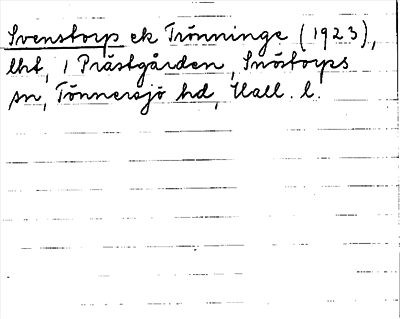 Svenstorp ek Trönninge (1923),
lht, 1 Prästgården, Snöstorps
sn, Tönnersjö hd, Hall. l.